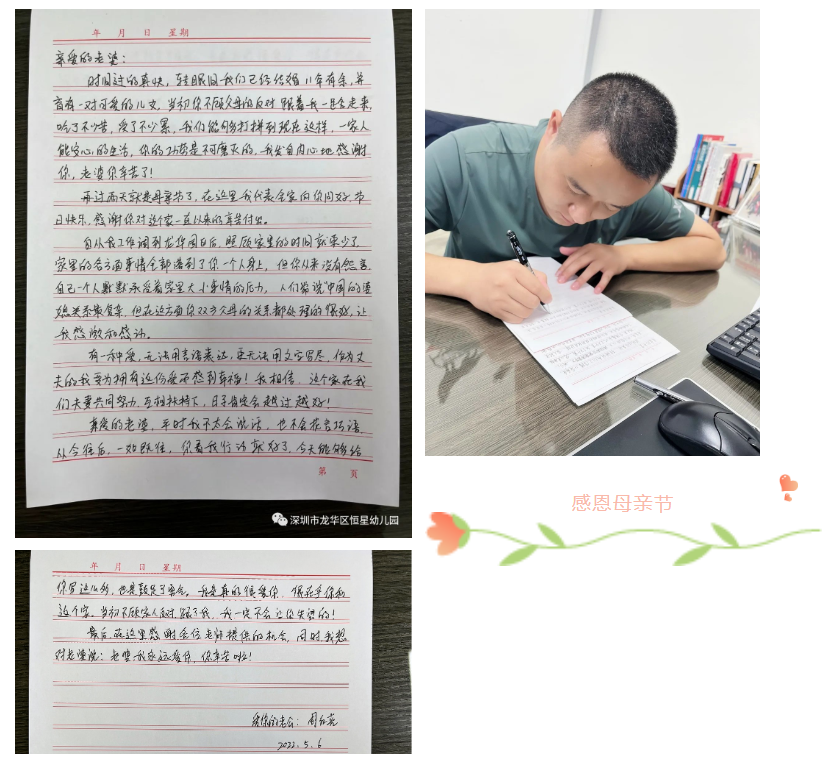 年 月 日 星期
亲爱的老婆:
时间过的真快,转眼间我们已经结婚11年有余,并
育有一对可爱的儿女,当初你不顾父母的反对跟着我一路走来,
吃了不少苦,受了不少累,我们能够打拼到现在这样,一家人
能安心的生活,你的功劳是不可磨灭的,我发自内心地感谢
你,老婆你辛苦了!
再过两天就是母亲节了,在这里我代表全家向你问好,节
日快乐,感谢你对这个家一直以来的辛苦付出。
自从我工作调到龙华园区后,照顾家里的时间就更少了,
家里的各方面事情全部落到了你一个人身上,但你从来没有怨言,
自己一个人默默承受着家里大小事情的压力,人们常说"中国的婆
媳关系最复杂,但在这方面你双方父母的关系都处理的很好,让
我感激和感动。
有一种爱,无法用言语表达,更无法用文字写尽,作为丈
夫的我要为拥有这份爱而感到幸福!我相信,这个家在我
们夫妻共同努力、互相扶持下,日子肯定会越过越好!
亲爱的老婆,平时我不太会说话,也不会花言巧语,
从今往后,一如既往,你看我行动就好了,今天能够给
第 页
深圳市龙华区恒星幼儿园
年 月 日 星期
你写这么多,也是鼓足了勇气,我是真的很爱你,很在乎你和
这个家,当初不顾家人反对,跟了我,我一定不会让你失望的!
最后,在这里感谢老师提供的机会,同时,我想
对老婆说:老婆我永远爱你,你辛苦啦!
爱你的老公:周
2022.5.6
感恩母亲节